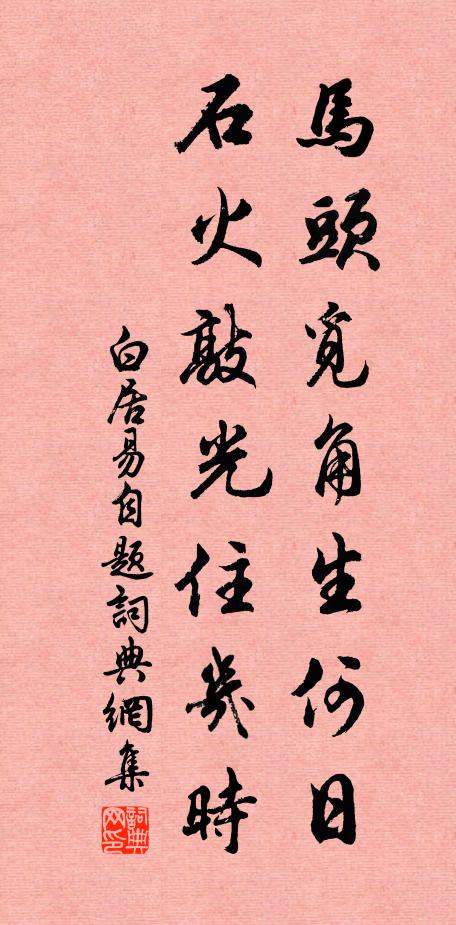 馬頭覓角生何日
石火敲光住幾時
白居易自題詞典網集
詞典网印